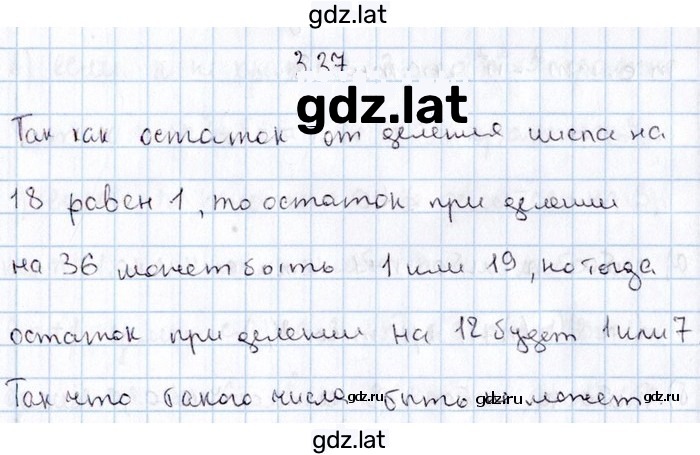 gdz.lat
3.27
gdz.lat
Так как остаток от деления числа на
18 равен 1, то остаток при делении
на 36 может быть 1 или 19, но тогда
остаток при делении на 12 будет 1 или 7
Так что такого числа быть не может.
gdz.ru gdz.ru
gdz.lat